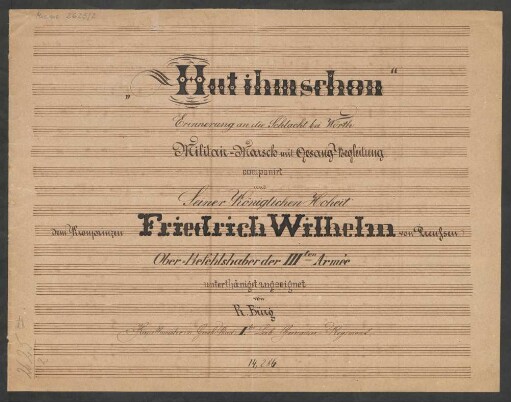 „Hut ihm schon“
Erinnerung an die Schlacht bei Wörth
Militair-Marsch mit Gesang-Begleitung
componirt
und
Seiner Königlichen Hoheit
dem Kronprinzen Friedrich Wilhelm von Preussen
Ober-Befehlshaber der IIIten Armée
unterthänigst zugeeignet
von
R. Bürg
14,286